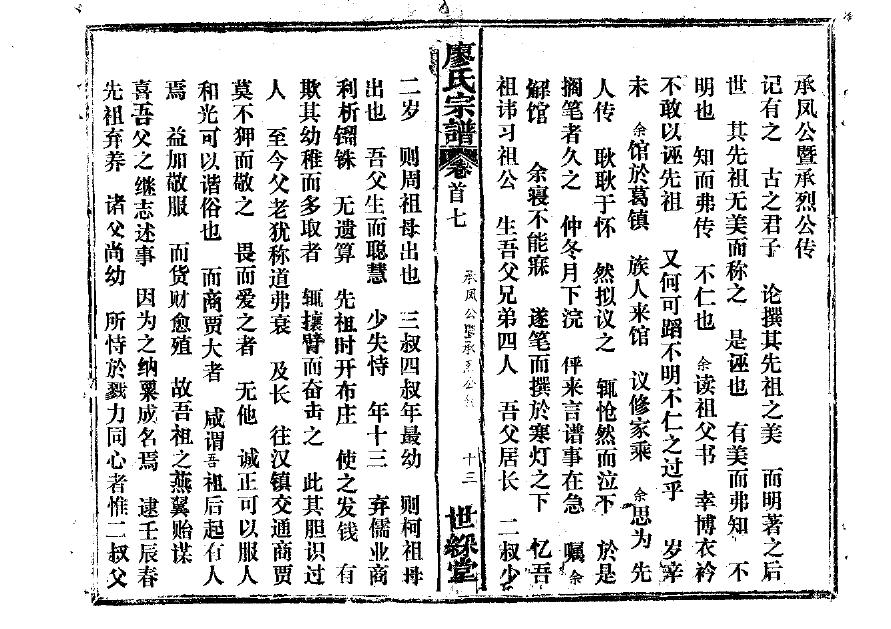 承凤公暨承烈公传
记有之 古之君子 论撰其先祖之美 而明著之后
世 其先祖无美而称之 是诬也 有美而弗知 不
明也 知而弗传 不仁也 余读祖父书 幸博衣衿
不敢以诬先祖 又何可蹈不明不仁之过乎 岁辛
未 余馆於葛镇 族人来馆 议修家乘 余思为 先
人传 耿耿于怀 然拟议之 辄怆然而泣下 於是
搁笔者久之 仲冬月下浣 伻来言谱事在急 嘱余
解馆 余寝不能寐 遂笔而撰於寒灯之下 忆吾
祖讳习祖公 生吾父兄弟四人 吾父居长 二叔少
廖氏宗譜 卷首七 承凤公暨承 公 十三 世綵堂
二岁 则周祖母出也 三叔四叔年最幼 则柯祖母
出也 吾父生而聪慧 少失恃 年十三 弃儒业商
利析锱铢 无遗算 先祖时开布庄 使之发钱 有
欺其幼稚而多取者 辄攘臂而奋击之 此其胆识过
人 至今父老犹称道弗衰 及长 往汉镇交通商贾
莫不狎而敬之 畏而爱之者 无他 诚正可以服人
和光可以谐俗也 而商贾大者 咸谓吾祖后起有人
焉 益加敬服 而货财愈殖 故吾祖之燕翼贻谋
喜吾父之继志述事 因为之纳粟成名焉 逮壬辰春
先祖弃养 诸父尚幼 所恃於戮力同心者惟二叔父